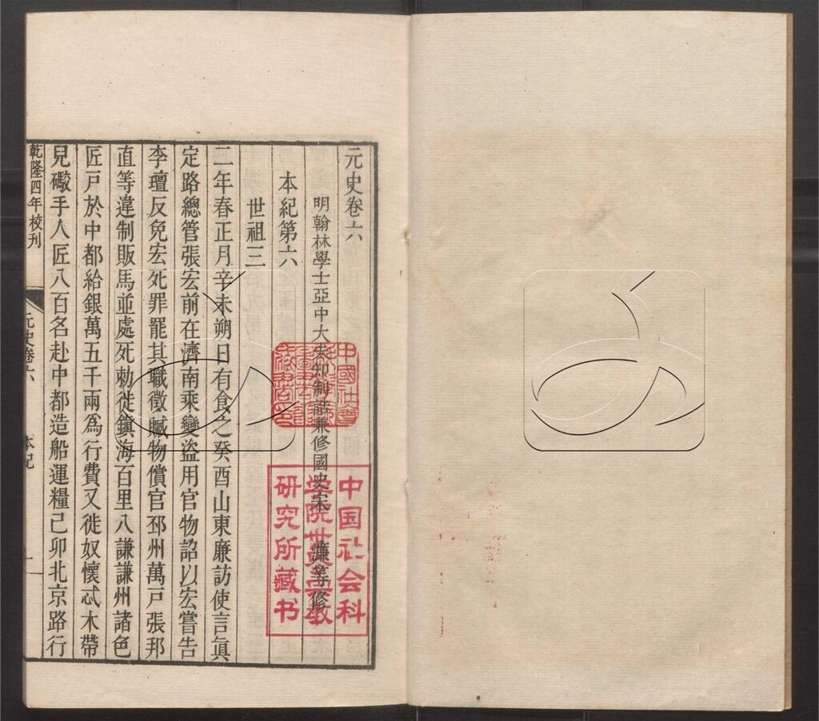 元史卷六
明翰林學士亞中大夫知制誥兼修國史宋 濂等修
本紀第六
世祖三
二年春正月辛未朔日有食之癸酉山東廉訪使言眞
定路總管張宏前在濟南乘變盜用官物詔以宏嘗告
李璮反免宏死罪罷其職徵贓物償官邳州萬戶張邦
直等違制販馬並處死勑徙鎮海百里八謙謙州諸色
匠戶於中都給銀萬五千兩爲行費又徙奴懷忒木帶
兒礮手人匠八百名赴中都造船運糧己卯北京路行
乾隆四年校刋
元史卷六 本紀 一
中国社会科
学院世界宗教
研究所藏书